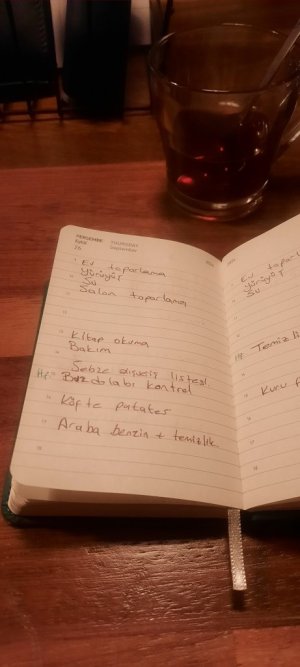 PERŞEMBE THURSDAY
Eylül September
26
Ev toparlama
Yürüyüş
Su
Salon toparlama
Kitap okuma
Bakım
Sebze alışveriş listesi
Buzdolabı kontrol
Köfte patates
Araba benzin + temizlik
Ev
Yürüyüş
Su
Kuru